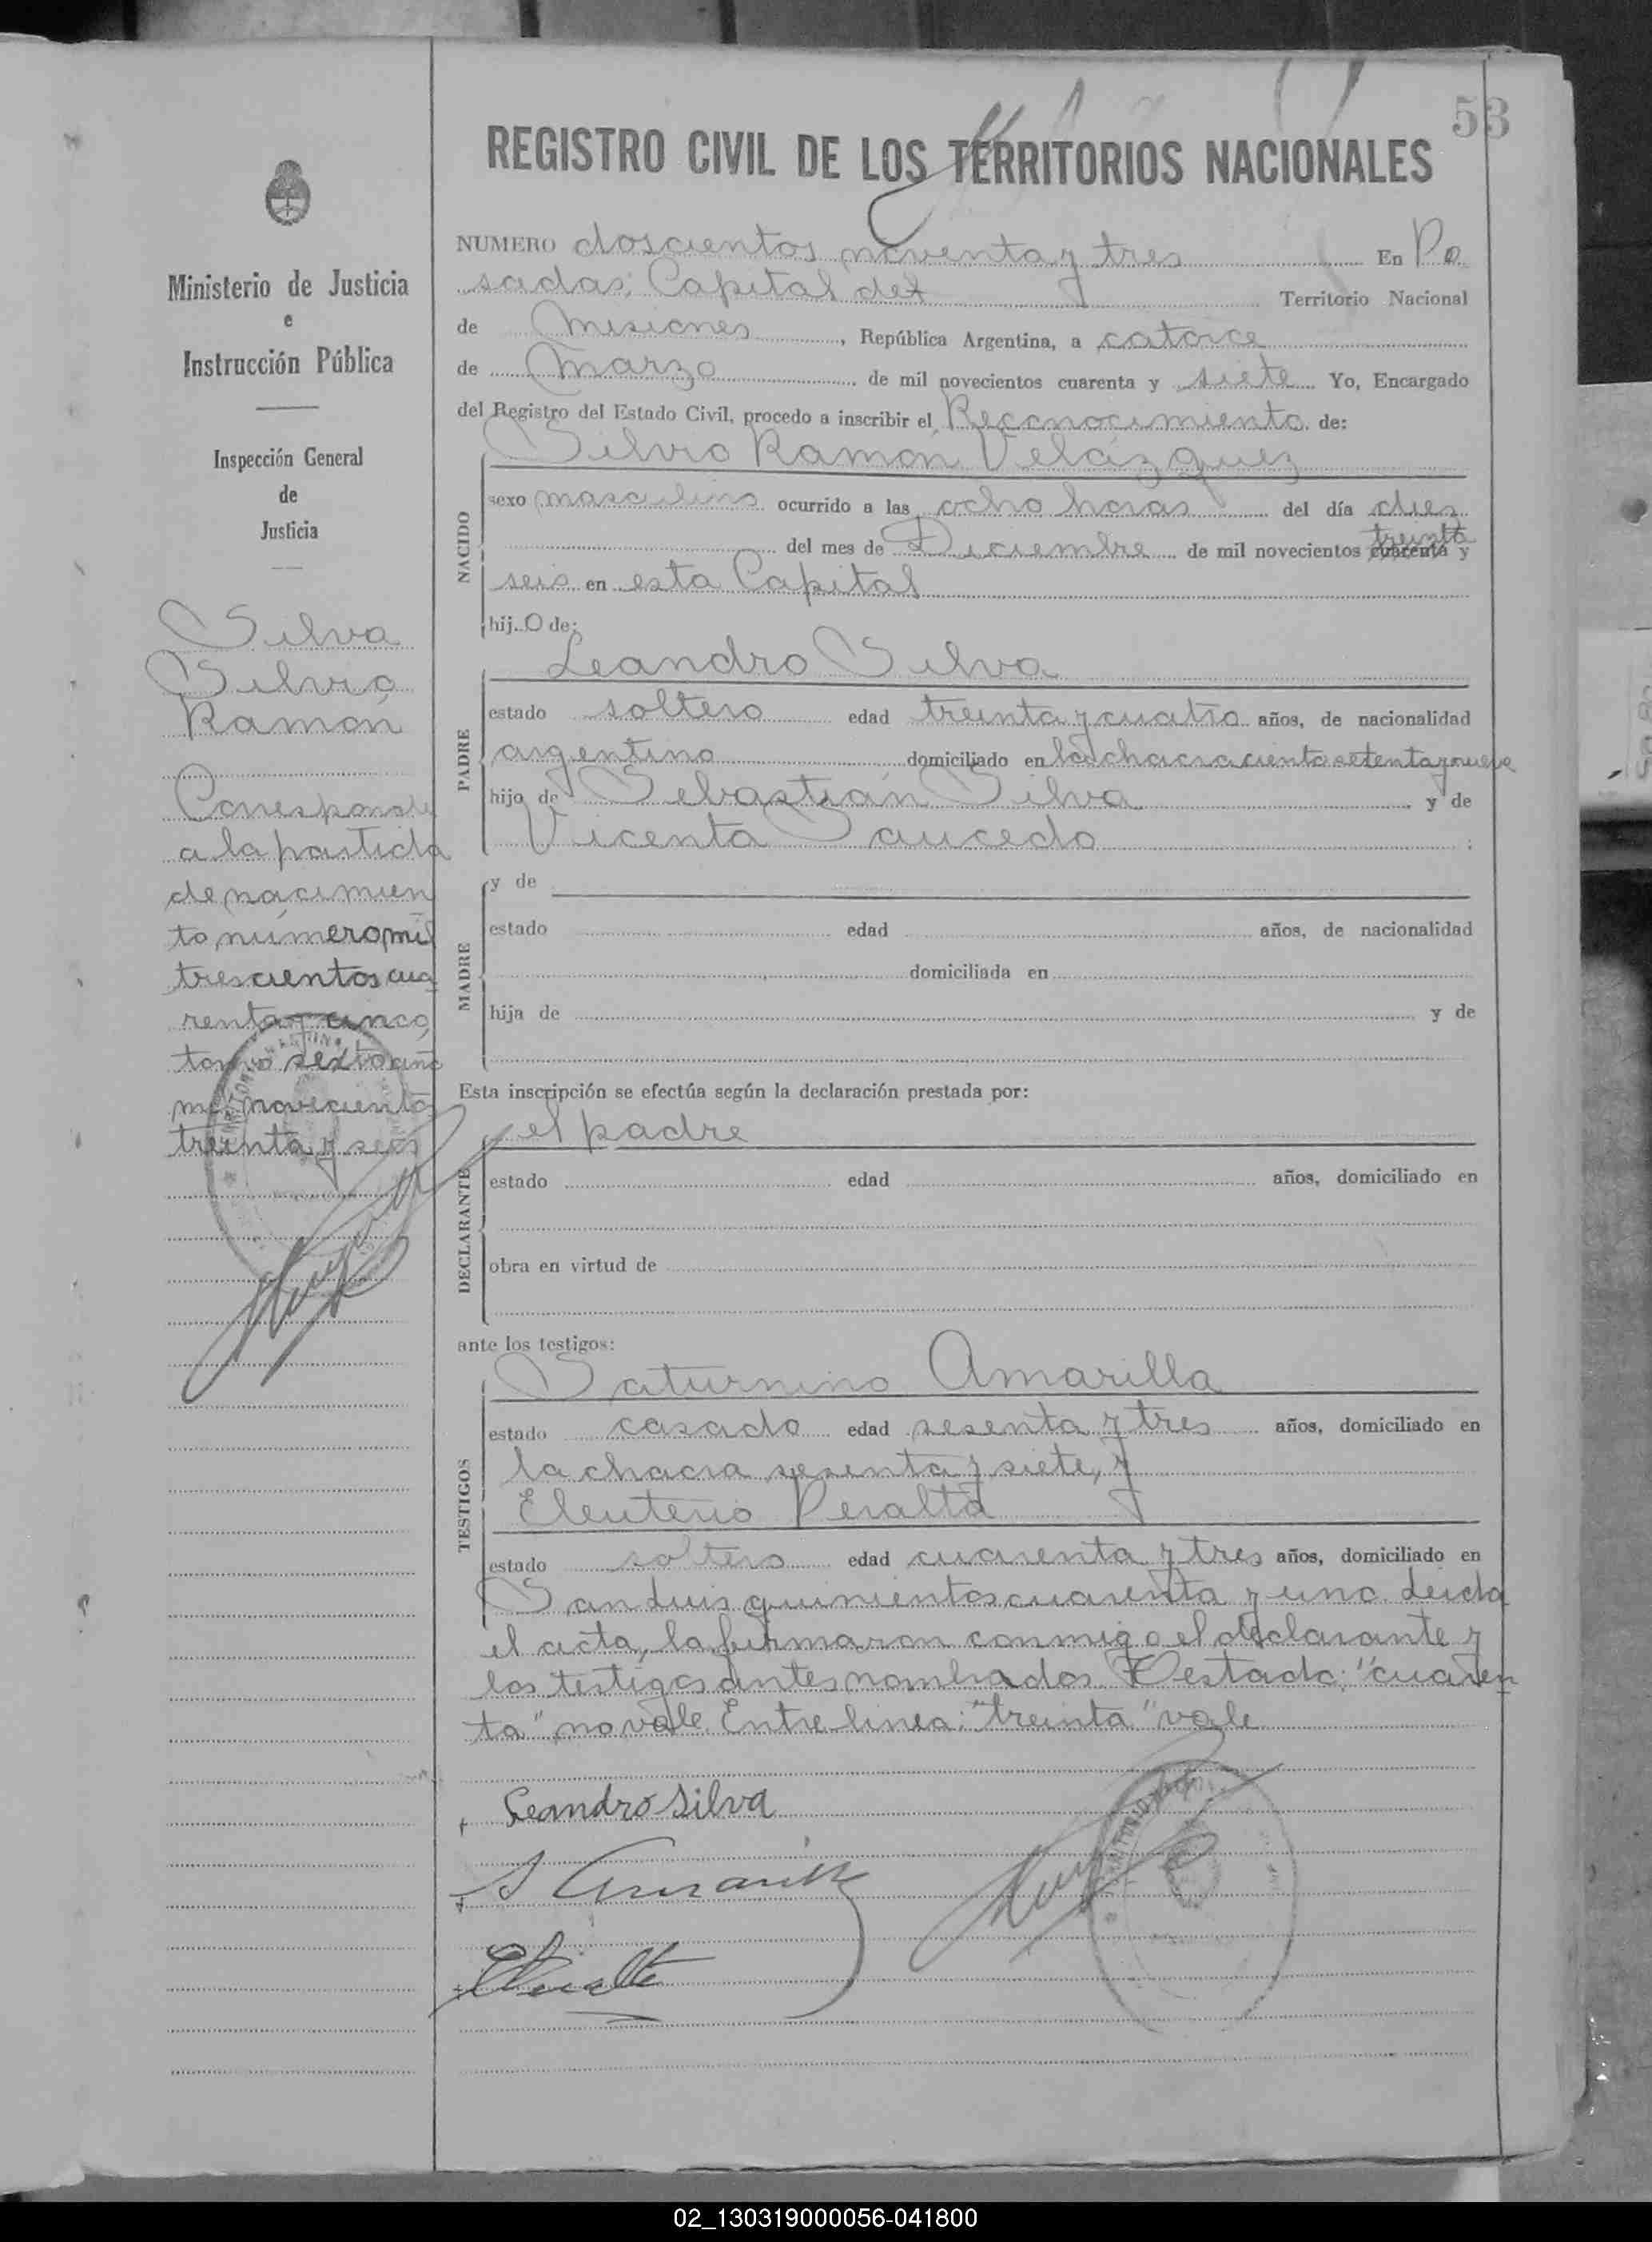 53
REGISTRO CIVIL DE LOS TERRITORIOS NACIONALES
Ministerio de Justicia
e
Instrucción Pública
Inspección General
de
Justicia
Silva
Silvio
Ramón
Corresponde
a la partida
de nacimien
to número mil
trescientos cua
renta y cinco
tomo sexto año
mil novecientos
treinta y seis
NUMERO doscientos noventa y tres En Po
sadas, Capital del Territorio Nacional
de Misiones, República Argentina, a catorce
de Marzo de mil novecientos cuarenta y siete Yo, Encargado
del Registro del Estado Civil, procedo a inscribir el Reconocimiento de:
NACIDO
Silvio Ramón Velázquez
sexo masculino ocurrido a las ocho horas del día diez
treinta
del mes de Diciembre de mil novecientos cuarenta y
seis en esta Capital
hijo de:
PADRE
Leandro Silva
estado soltero edad treinta y cuatro años, de nacionalidad
argentino domiciliado en la chacra ciento setenta y nueve
hijo de Sebastián Silva y de
Vicenta Saucedo ;
MADRE
y de
estado edad años, de nacionalidad
domiciliada en
hija de y de
Esta inscripción se efectúa según la declaración prestada por:
DECLARANTE
el padre
estado edad años, domiciliado en
obra en virtud de
ante los testigos:
TESTIGOS
Saturnino Amarilla
estado casado edad sesenta y tres años, domiciliado en
la chacra sesenta y siete, y
Eleuterio Peralta
estado soltero edad cuarenta y tres años, domiciliado en
San Luis quinientos cuarenta y uno. Leida
el acta, la firmaron conmigo el declarante y
los testigos antes nombrados. Testado: "cuaren
ta" no vale. Entre linea: "treinta" vale
Leandro Silva
S Amarilla
EPeralta
02_130319000056-041800